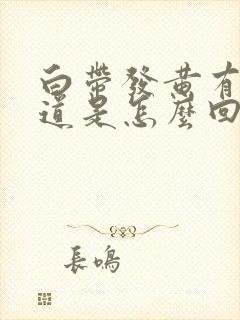 白帶發黃有
道是怎麼回
長鳴